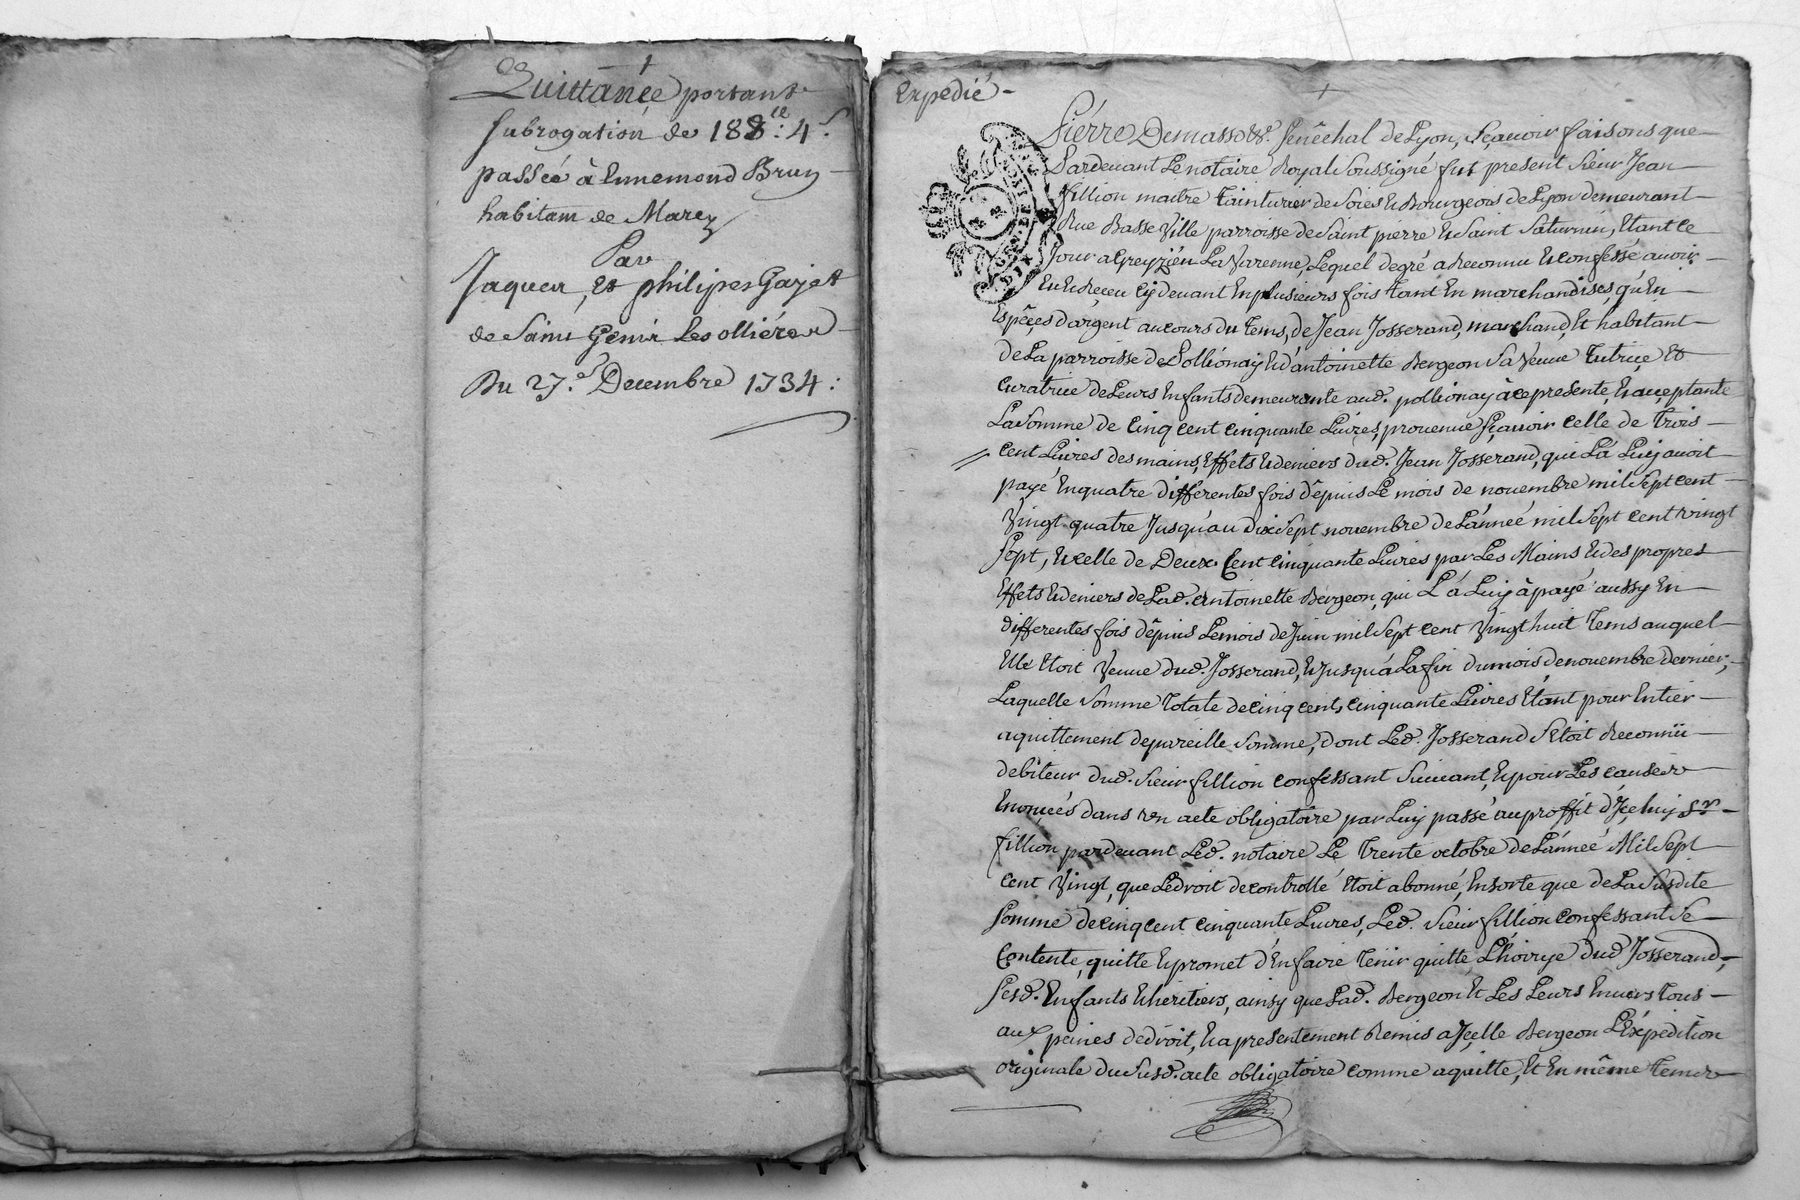 Quittance portant
subrogation de 188ᴸᴸ: 4ˢ
passée à Ennemond Brun
habitant de Marcy
Par
Jaques, Et philipes Gayet
de Saint Genis Les olliéres
Du 27.ᵉ Decembre 1734:
Expedié
Pierre Demasso &ᵃ. Senêchal de Lyon, Sçavoir faisons que
Pardevant Le notaire Royal Soussigné fut present Sieur Jean
fillion maitre tainturier de Soies & Bourgeois de Lyon demeurant
Rue Basse Ville parroisse de Saint pierre & Saint Saturnin, Etant ce
Jour a Greyzieu La Varenne, Lequel de gré a Reconnu & confessé avoir
Eu & Reçeu cÿ devant En plusieurs fois tant En marchandises, qu'En
Espêçes d'argent au cours du tems, de Jean Josserand, marchand, Et habitant
de La parroisse de Pollionaÿ & d'antoinette Bergeon Sa Veuve tutriçe Et
curatrice de Leurs Enfants demeurante aud. pollionaÿ à ce presente, & acçeptante
La Somme de Cinq cent cinquante Livres, provenue Sçavoir celle de trois
cent Livres des mains, Effets & deniers dud. Jean Josserand, qui L'a Luÿ avoit
payé En quatre differentes fois dêpuis Le mois de novembre mil Sept cent
Vingt quatre Jusqu'au dix Sept novembre de L'année mil Sept cent vingt
Sept, & celle de Deux Cent cinquante Livres par Les Mains & des propres
Effets & deniers de Lad. antoinette Bergeon, qui L'a Luÿ à payé aussy En
differentes fois dêpuis Le mois de Juin mil Sept cent Vingt huit tems auquel
Elle Etoit Veuve dud. Josserand, & jusqu'à La fin du mois de novembre dernier,
Laquelle Somme totale de cinq cent cinquante Livres Etant pour Entier
aquittement de pareille Somme, dont Led. Josserand S'Etoit Reconnü
debiteur dud. Sieur fillion confessant Suivant, & pour Les causes
Enonçées dans un acte obligatoire par Luÿ passé au proffit d'Jçeluÿ Sʳ
fillion pardevant Led. notaire Le trente octobre de L'année Mil Sept
cent Vingt, que Le droit de controlle Etoit abonné, En Sorte que de La Susdite
Somme de cinq cent cinquante Livres, Led. Sieur fillion confessant Se
Contente, quitte & promet d'En faire tenir quitte L'hoirye dud Josserand,
Sesd. Enfants & heritiers, ainsy que Lad. Bergeon Et Les Leurs Envers tous
aux peines de droit, & a presentement Remis a Jçelle Bergeon L'Expedition
originale du Susd. acte obligatoire comme aquitté, Et En même tems